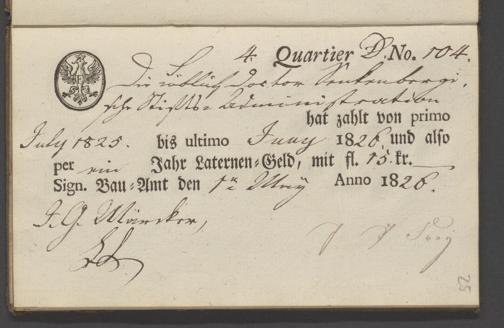 4. Quartier D. No. 104.
Die löblich Doctor Senkenbergi,
sche Stifts=Administration
hat zahlt von primo
July 1825. bis ultimo Juny 1826, und also
per ein Jahr Laternen=Geld, mit fl. 15. kr.
Sign. Bau=Amt den Anno 1826.
J. G. Märcker,
25